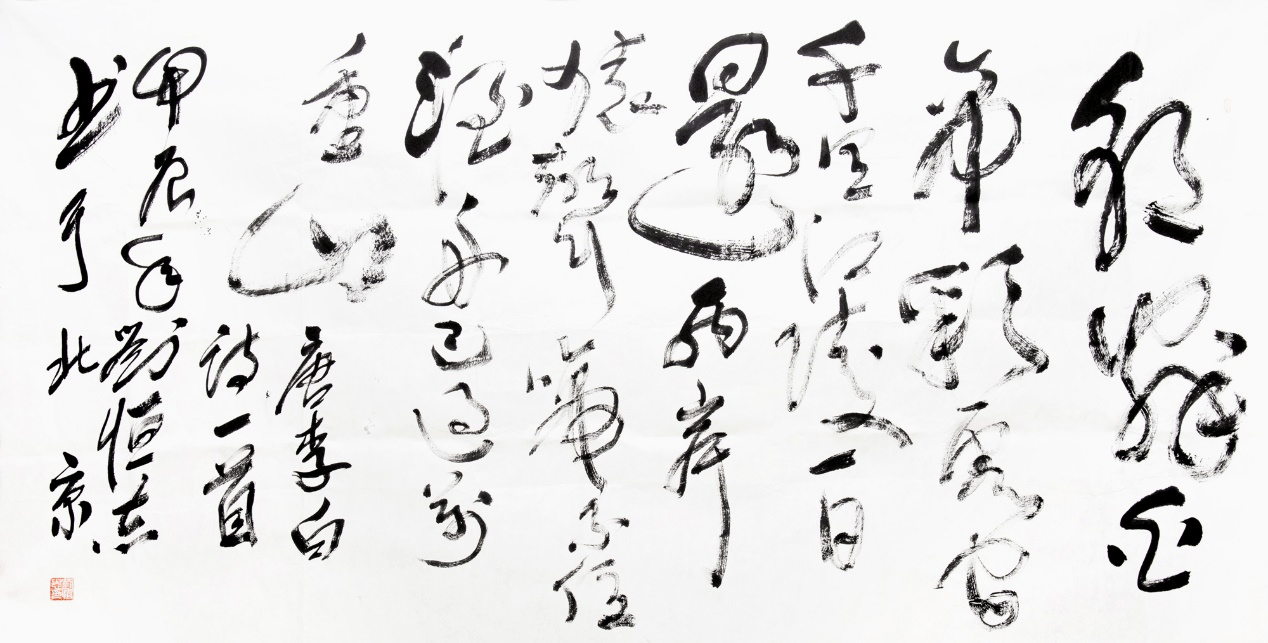 朝辭白
帝彩雲間
千里江陵一日
還两岸
猿聲啼不住
轻舟已过万
重山 唐李白
诗一首
甲辰年劉恒志
书于北京